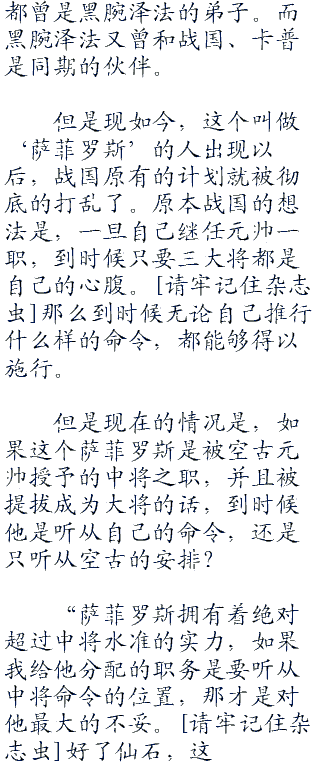 都曾是黑腕泽法的弟子。而
黑腕泽法又曾和战国、卡普
是同期的伙伴。
但是现如今，这个叫做
‘萨菲罗斯’的人出现以
后，战国原有的计划就被彻
底的打乱了。原本战国的想
法是，一旦自己继任元帅一
职，到时候只要三大将都是
自己的心腹。[请牢记住杂志
虫]那么到时候无论自己推行
什么样的命令，都能够得以
施行。
但是现在的情况是，如
果这个萨菲罗斯是被空古元
帅授予的中将之职，并且被
提拔成为大将的话，到时候
他是听从自己的命令，还是
只听从空古的安排？
“萨菲罗斯拥有着绝对
超过中将水准的实力，如果
我给他分配的职务是要听从
中将命令的位置，那才是对
他最大的不妥。[请牢记住杂
志虫]好了仙石，这